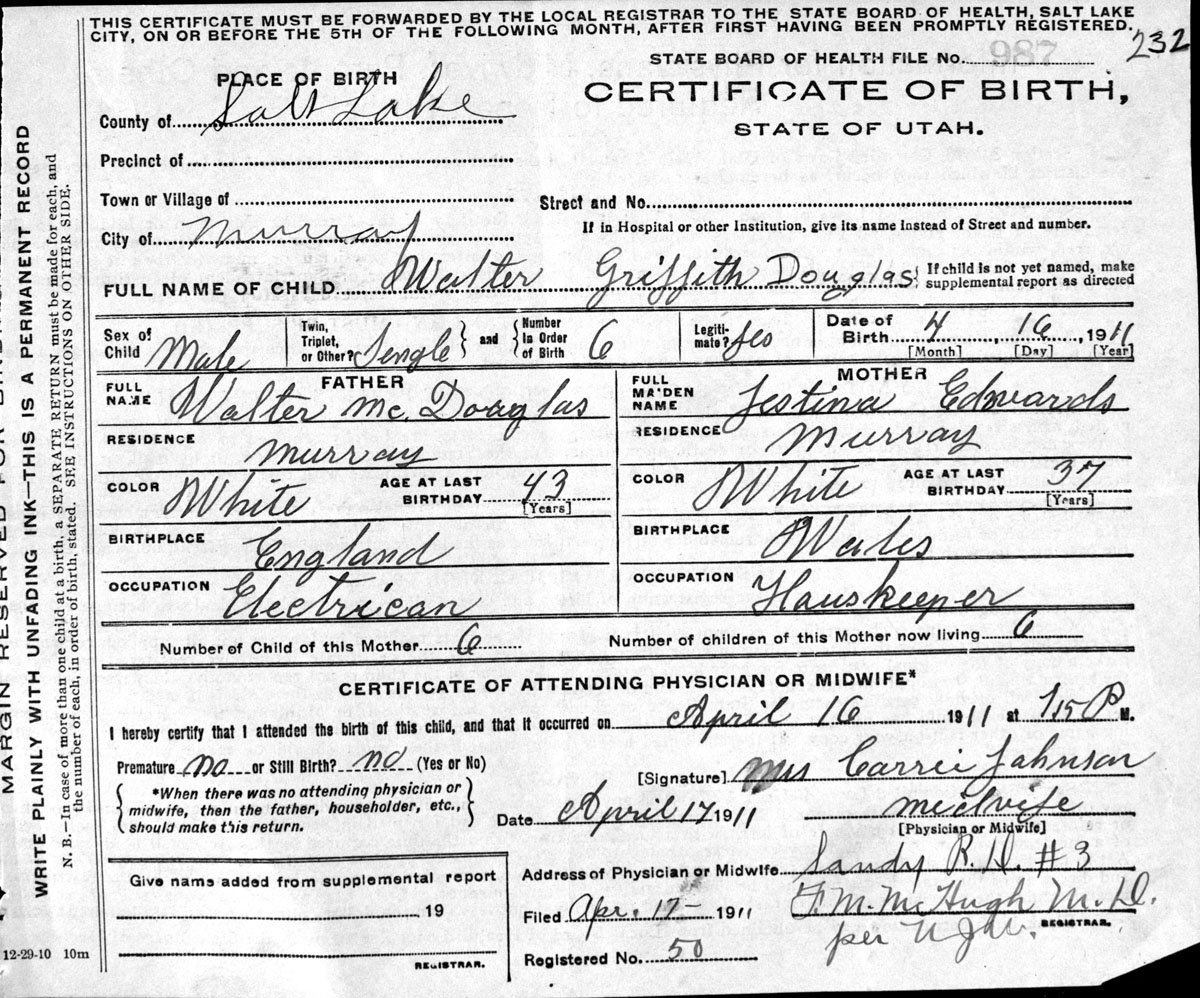 THIS CERTIFICATE MUST BE FORWARDED BY THE LOCAL REGISTRAR TO THE STATE BOARD OF HEALTH, SALT LAKE
CITY, ON OR BEFORE THE 5TH OF THE FOLLOWING MONTH, AFTER FIRST HAVING BEEN PROMPTLY REGISTERED.
232
STATE BOARD OF HEALTH FILE No. 987
CERTIFICATE OF BIRTH,
STATE OF UTAH.
PLACE OF BIRTH
County of Salt Lake
Precinct of
Town or Village of
Street and No.
City of Murray
If in Hospital or other Institution, give its name Instead of Street and number.
FULL NAME OF CHILD Walter Griffith Douglas
If child is not yet named, make
supplemental report as directed
Sex of Child Male
Twin, Triplet, or Other? Sengle and Number In Order of Birth 6
Legiti-mate? Yes
Date of Birth 4 16 1911
[Month] [Day] [Year]
FATHER
FULL NAME Walter Mc. Douglas
RESIDENCE Murray
COLOR White AGE AT LAST BIRTHDAY 43 [Years]
BIRTHPLACE England
OCCUPATION Electrican
MOTHER
FULL MAIDEN NAME Jestina Edwards
RESIDENCE Murray
COLOR White AGE AT LAST BIRTHDAY 37 [Years]
BIRTHPLACE Wales
OCCUPATION Hauskeeper
Number of Child of this Mother 6 Number of children of this Mother now living 6
CERTIFICATE OF ATTENDING PHYSICIAN OR MIDWIFE*
I hereby certify that I attended the birth of this child, and that it occurred on April 16 1911 at 7 15 P M.
Premature no or Still Birth? no (Yes or No)
*When there was no attending physician or
midwife, then the father, householder, etc.,
should make this return.
[Signature] Mrs Carrie Johnson
Date April 17 1911
midvife
[Physician or Midwife]
Address of Physician or Midwife Sandy R. D. #3
Give name added from supplemental report
19
REGISTRAR.
Filed Apr. 17 - 1911
F. M. McHugh M.D.
REGISTRAR.
per
Registered No. 50
12-29-10 10m
MARGIN RESERVED FOR
WRITE PLAINLY WITH UNFADING INK—THIS IS A PERMANENT RECORD
N. B.—In case of more than one child at a birth, a SEPARATE RETURN must be made for each, and
the number of each, in order of birth, stated. SEE INSTRUCTIONS ON OTHER SIDE.